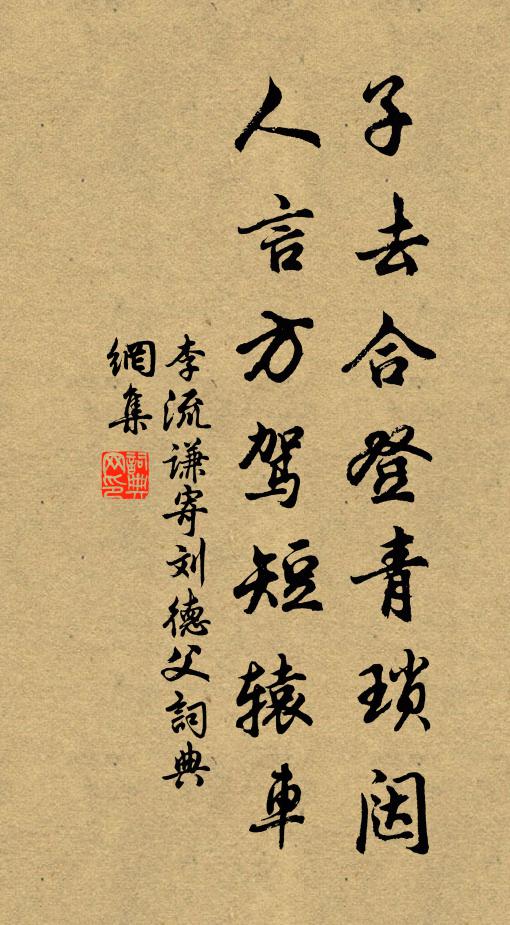 子去合登青琐闼
人言方驾短辕車
李流谦寄刘德父詞典
網集
詞典
网印